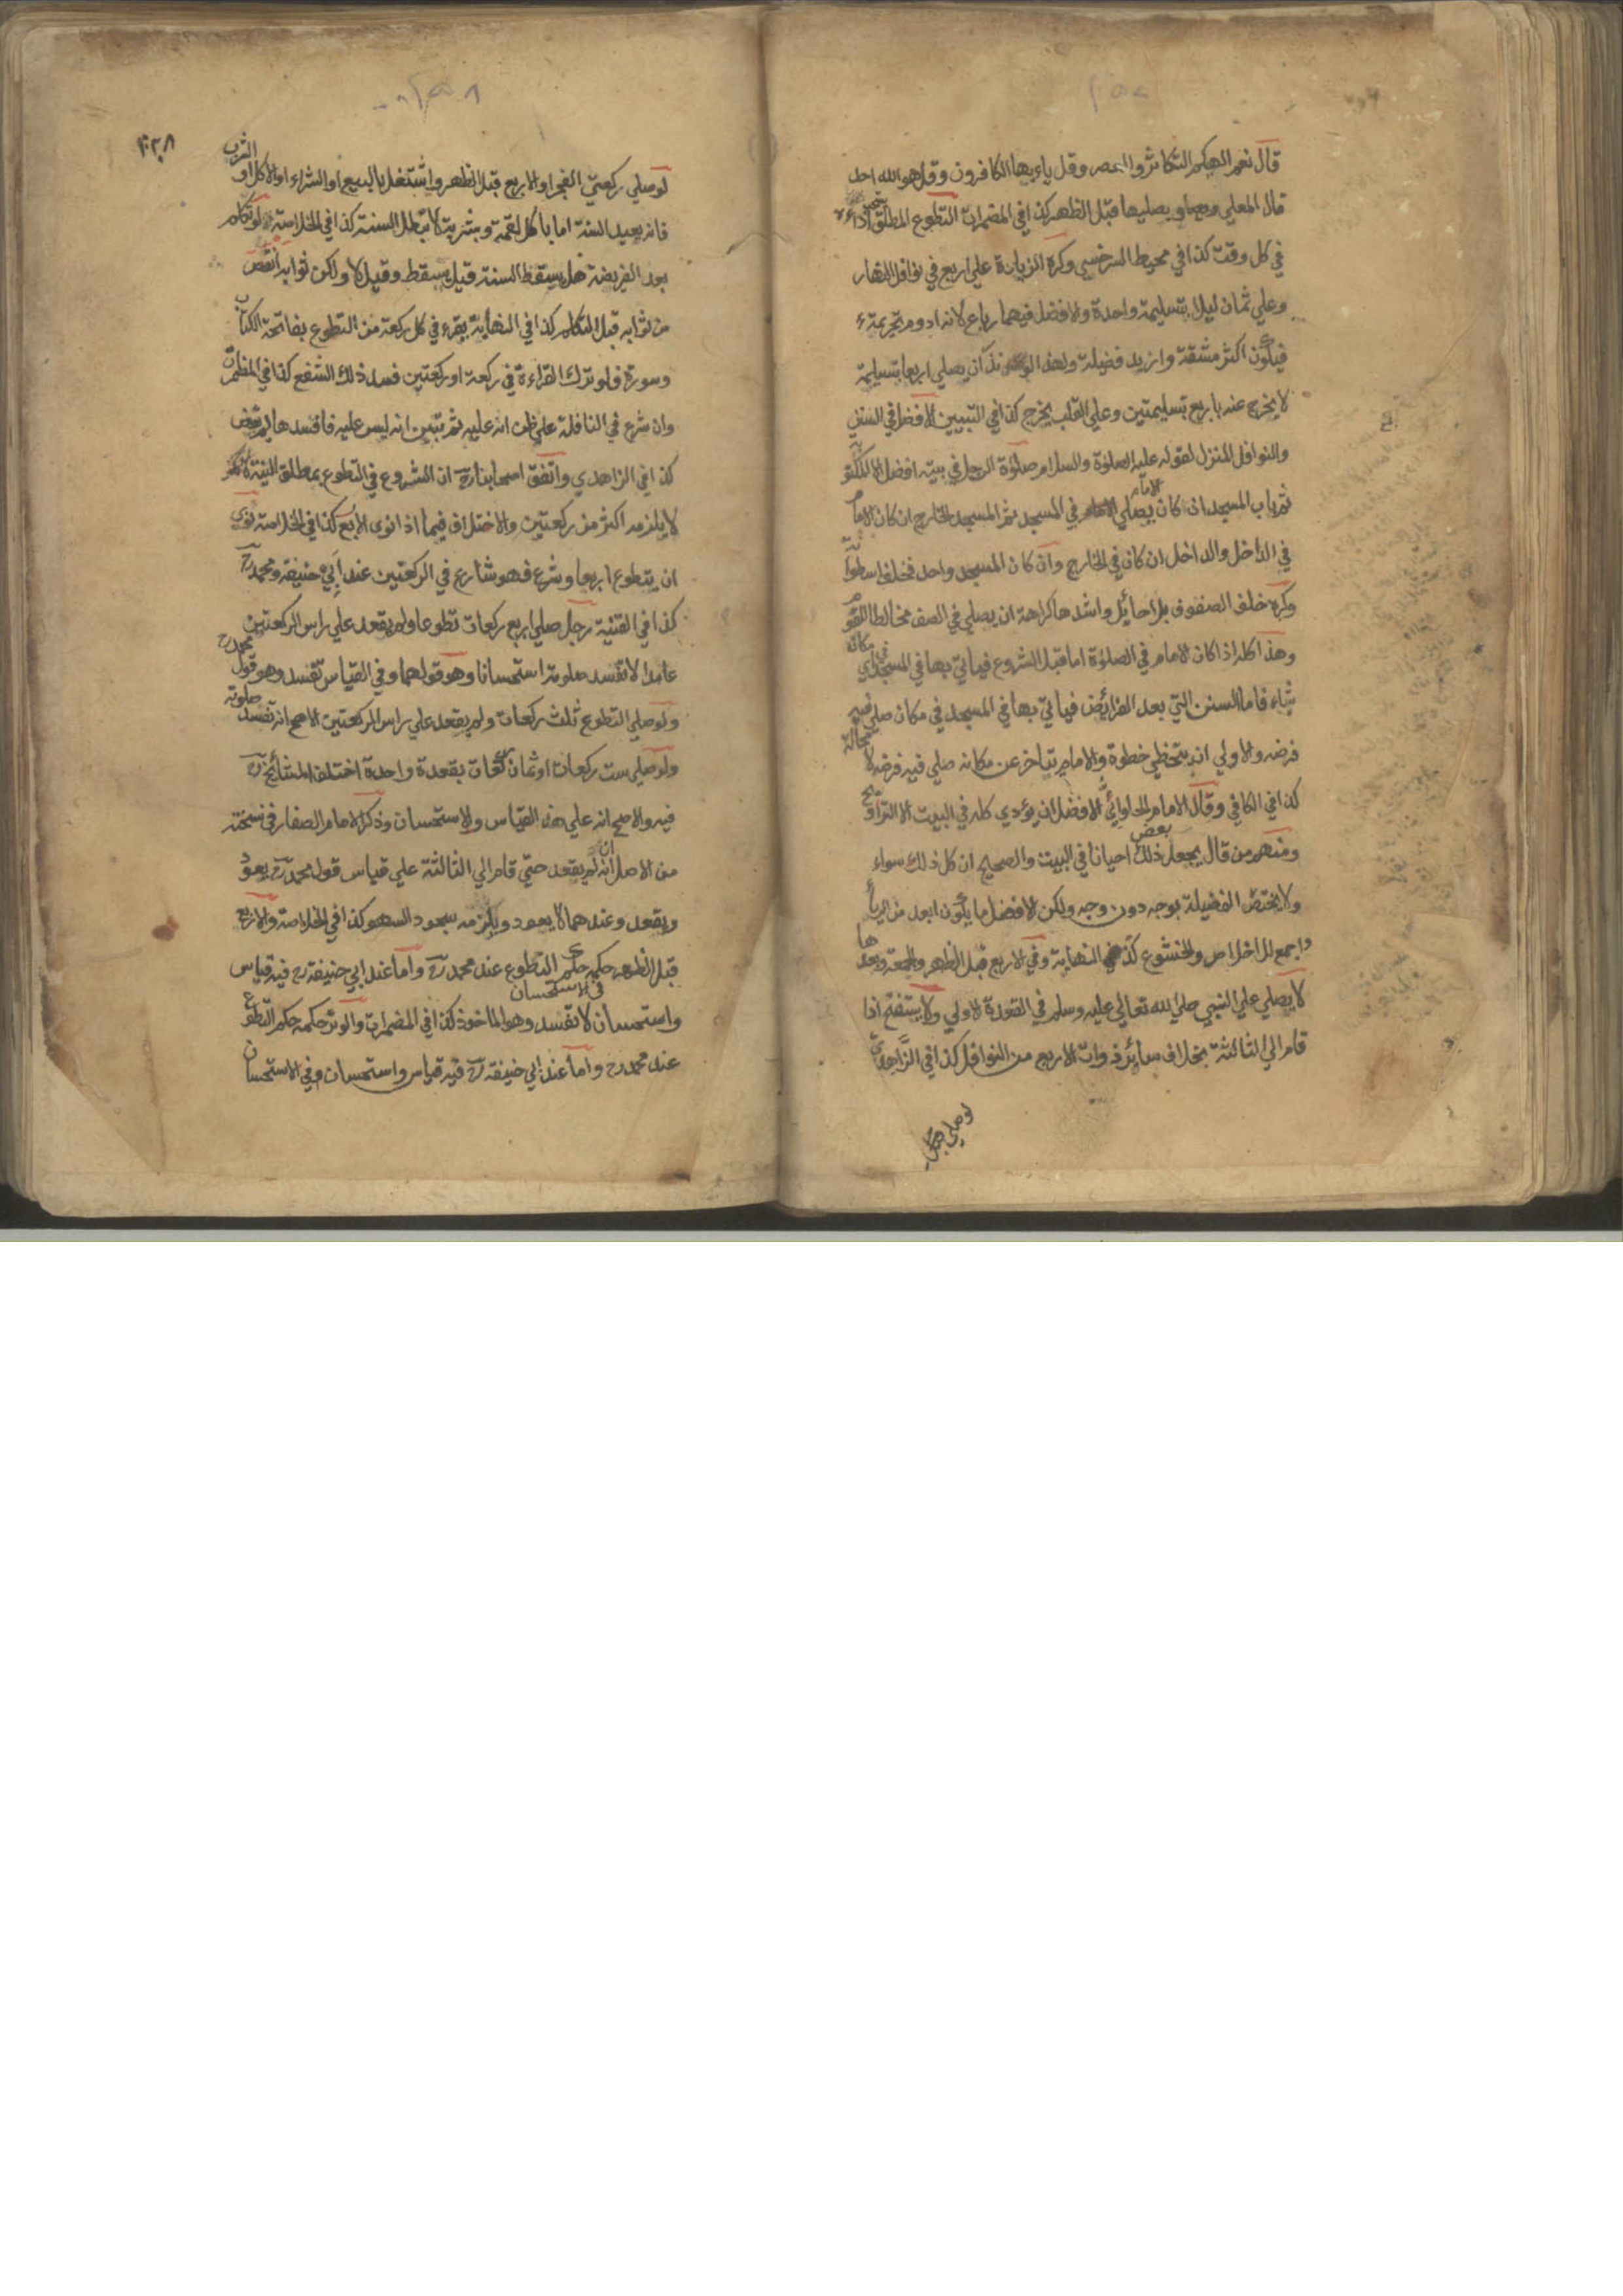 قال نعم الهيكم التكاثر والعصر وقل يا ايها الكافرون وقل هو الله احد
قال المعلي ويصليها قبل الظهر كذا في المضمرات التطوع المطلق اداءه
في كل وقت كذا في محيط السرخسي وكره الزيادة علي اربع في نوافل النهار
وعلي ثمان ليلا بتسليمة واحدة والافضل فيهما رباع لانه ادوم تحريمة
فيكون اكثر مشقة وازيد فضيلة ولهذا لو نذر ان يصلي اربعا بتسليمة
لا يخرج عنه باربع بتسليمتين وعلي القلب يخرج كذا في التبيين الافضل في السنن
والنوافل المنزل لقوله عليه الصلوة والسلام صلوة الرجل في بيته افضل الا المكتوبة
ثم باب المسجد ان كان يصلي الامام في المسجد ثم المسجد الخارج ان كان الامام
في الداخل والداخل ان كان في الخارج وان كان المسجد واحد فخلف اسطوانة
وكره خلف الصفوف بلا حائل واشدها كراهة ان يصلي في الصف مخالطا للقوم
وهذا كله اذا كان الامام في الصلوة اما قبل الشروع فياتي بها في المسجد في اي مكان
شاء فاما السنن التي بعد الفرائض فياتي بها في المسجد في مكان صلي فيه
فرضه والاولي ان يتخطي خطوة والامام يتاخر عن مكانه صلي فيه فرضه لا محالة
كذا في الكافي وقال الامام الحلوائي الافضل ان يؤدي كله في البيت الا التراويح
ومنهم من قال يجعل ذلك بعض احيانا في البيت والصحيح ان كل ذلك سواء
ولا يختص الفضيلة بوجه دون وجه ولكن الافضل ما يكون ابعد من الرياء
واجمع للاخلاص والخشوع كذا في النهاية وفي الاربع قبل الظهر والجمعة وبعدها
لا يصلي علي النبي صلي الله تعالي عليه وسلم في القعدة الاولي ولا يستفتح اذا
قام الي الثالثة بخلاف سائر ذوات الاربع من النوافل كذا في الزاهدي
لو صلي
لو صلي ركعتي الفجر او الاربع قبل الظهر واشتغل بالبيع او الشراء او الاكل او الشرب
فانه يعيد السنة اما باكل لقمة وشربة لا تبطل السنة كذا في الخلاصة لو تكلم
بعد الفريضة هل يسقط السنة قيل يسقط وقيل لا ولكن ثوابه انقص
من ثوابه قبل التكلم كذا في النهاية يقرء في كل ركعة من التطوع بفاتحة الكتاب
وسورة فلو ترك القراءة في ركعة او ركعتين فسد ذلك الشفع كذا في المضمرات
وان شرع في النافلة علي ظن انه عليه ثم تبين انه ليس عليه فافسدها لم يقض
كذا في الزاهدي واتفق اصحابنا رح ان الشروع في التطوع بمطلق النية
لا يلزمه اكثر من ركعتين والاختلاف فيما اذا نوي الاربع كذا في الخلاصة نوي
ان يتطوع اربعا وشرع فهو شارع في الركعتين عند ابي حنيفة ومحمد رح
كذا في القنية رجل صلي اربع ركعات تطوعا ولم يقعد علي راس الركعتين
عامدا لا تفسد صلوته استحسانا وهو قولهما وفي القياس تفسد وهو قول محمد رح
ولو صلي التطوع ثلث ركعات ولم يقعد علي راس الركعتين الاصح انه تفسد صلوته
ولو صلي ست ركعات او ثمان ركعات بقعدة واحدة اختلف المشائخ رح
فيه والاصح انه علي هذا القياس والاستحسان وذكر الامام الصفار في نسخته
من الاصل انه ان لم يقعد حتي قام الي الثالثة علي قياس قول محمد رح يعود
ويقعد وعندهما لا يعود ويلزمه سجود السهو كذا في الخلاصة والاربع
قبل الظهر حكمه حكم التطوع عند محمد رح واما عند ابي حنيفة رح فيه قياس
واستحسان في الاستحسان لا تفسد وهو الماخوذ كذا في المضمرات والوتر حكمه حكم التطوع
عند محمد رح واما عند ابي حنيفة رح فيه قياس واستحسان وفي الاستحسان